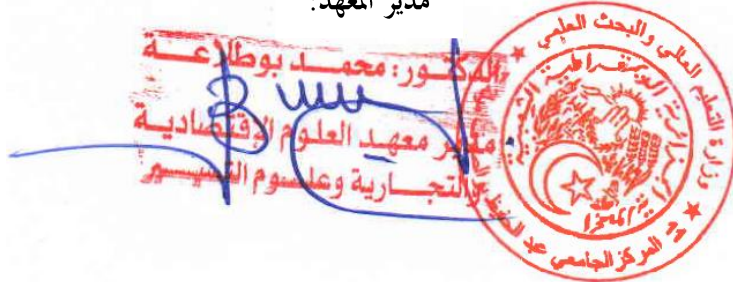 مدير المعهد:
الدكتور: محمد بوطلاعة
مدير معهد العلوم الإقتصادية
والتجارية وعلوم التسيير
وزارة التعليم العالي والبحث العلمي
الجمهورية الجزائرية الديمقراطية الشعبية
المركز الجامعي عبد الحفيظ